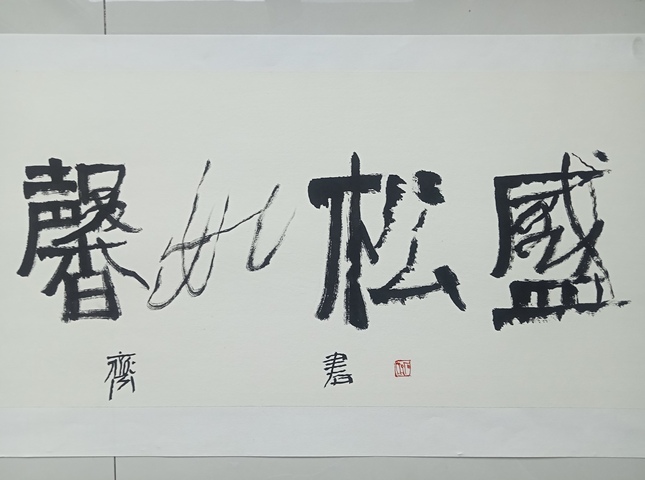 盛松如馨
書齊